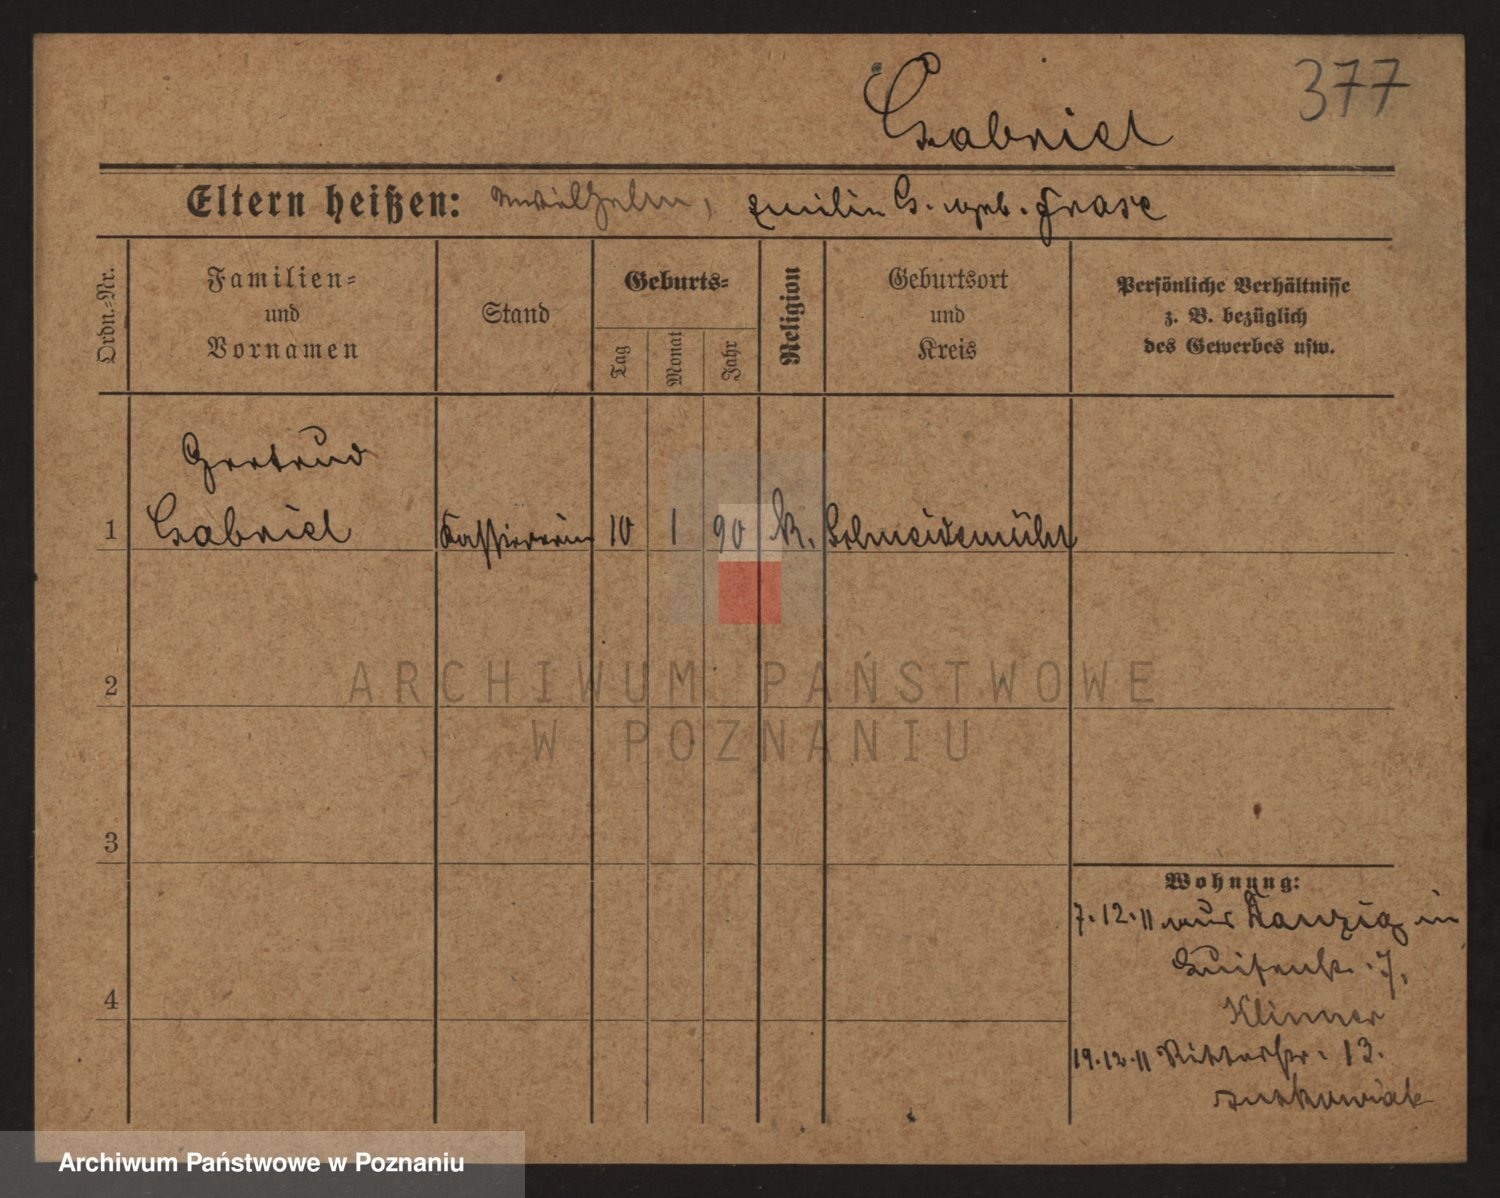 377
Gabriel
Eltern heißen: Wilhelm, Emilie G. geb. Frase
Ordn.=Nr.
Familien=
und
Vornamen
Stand
Geburts=
Tag
Monat
Jahr
Religion
Geburtsort
und
Kreis
Persönliche Verhältnisse
z. B. bezüglich
des Gewerbes usw.
Gertrud
1 Gabriel Kassiererin 10 1 90 k. Schneidemühl
2
3
4
Wohnung:
7.12.11 aus Danzig in
Luisenstr. 7,
Klinner
19.12.11 Ritterstr. 13.
ARCHIWUM PAŃSTWOWE
W POZNANIU
Archiwum Państwowe w Poznaniu